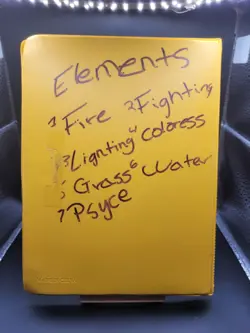 Elements
1 Fire 2 Fighting
3 Lighting 4 Coloress
5 Grass 6 Water
7 Psyce